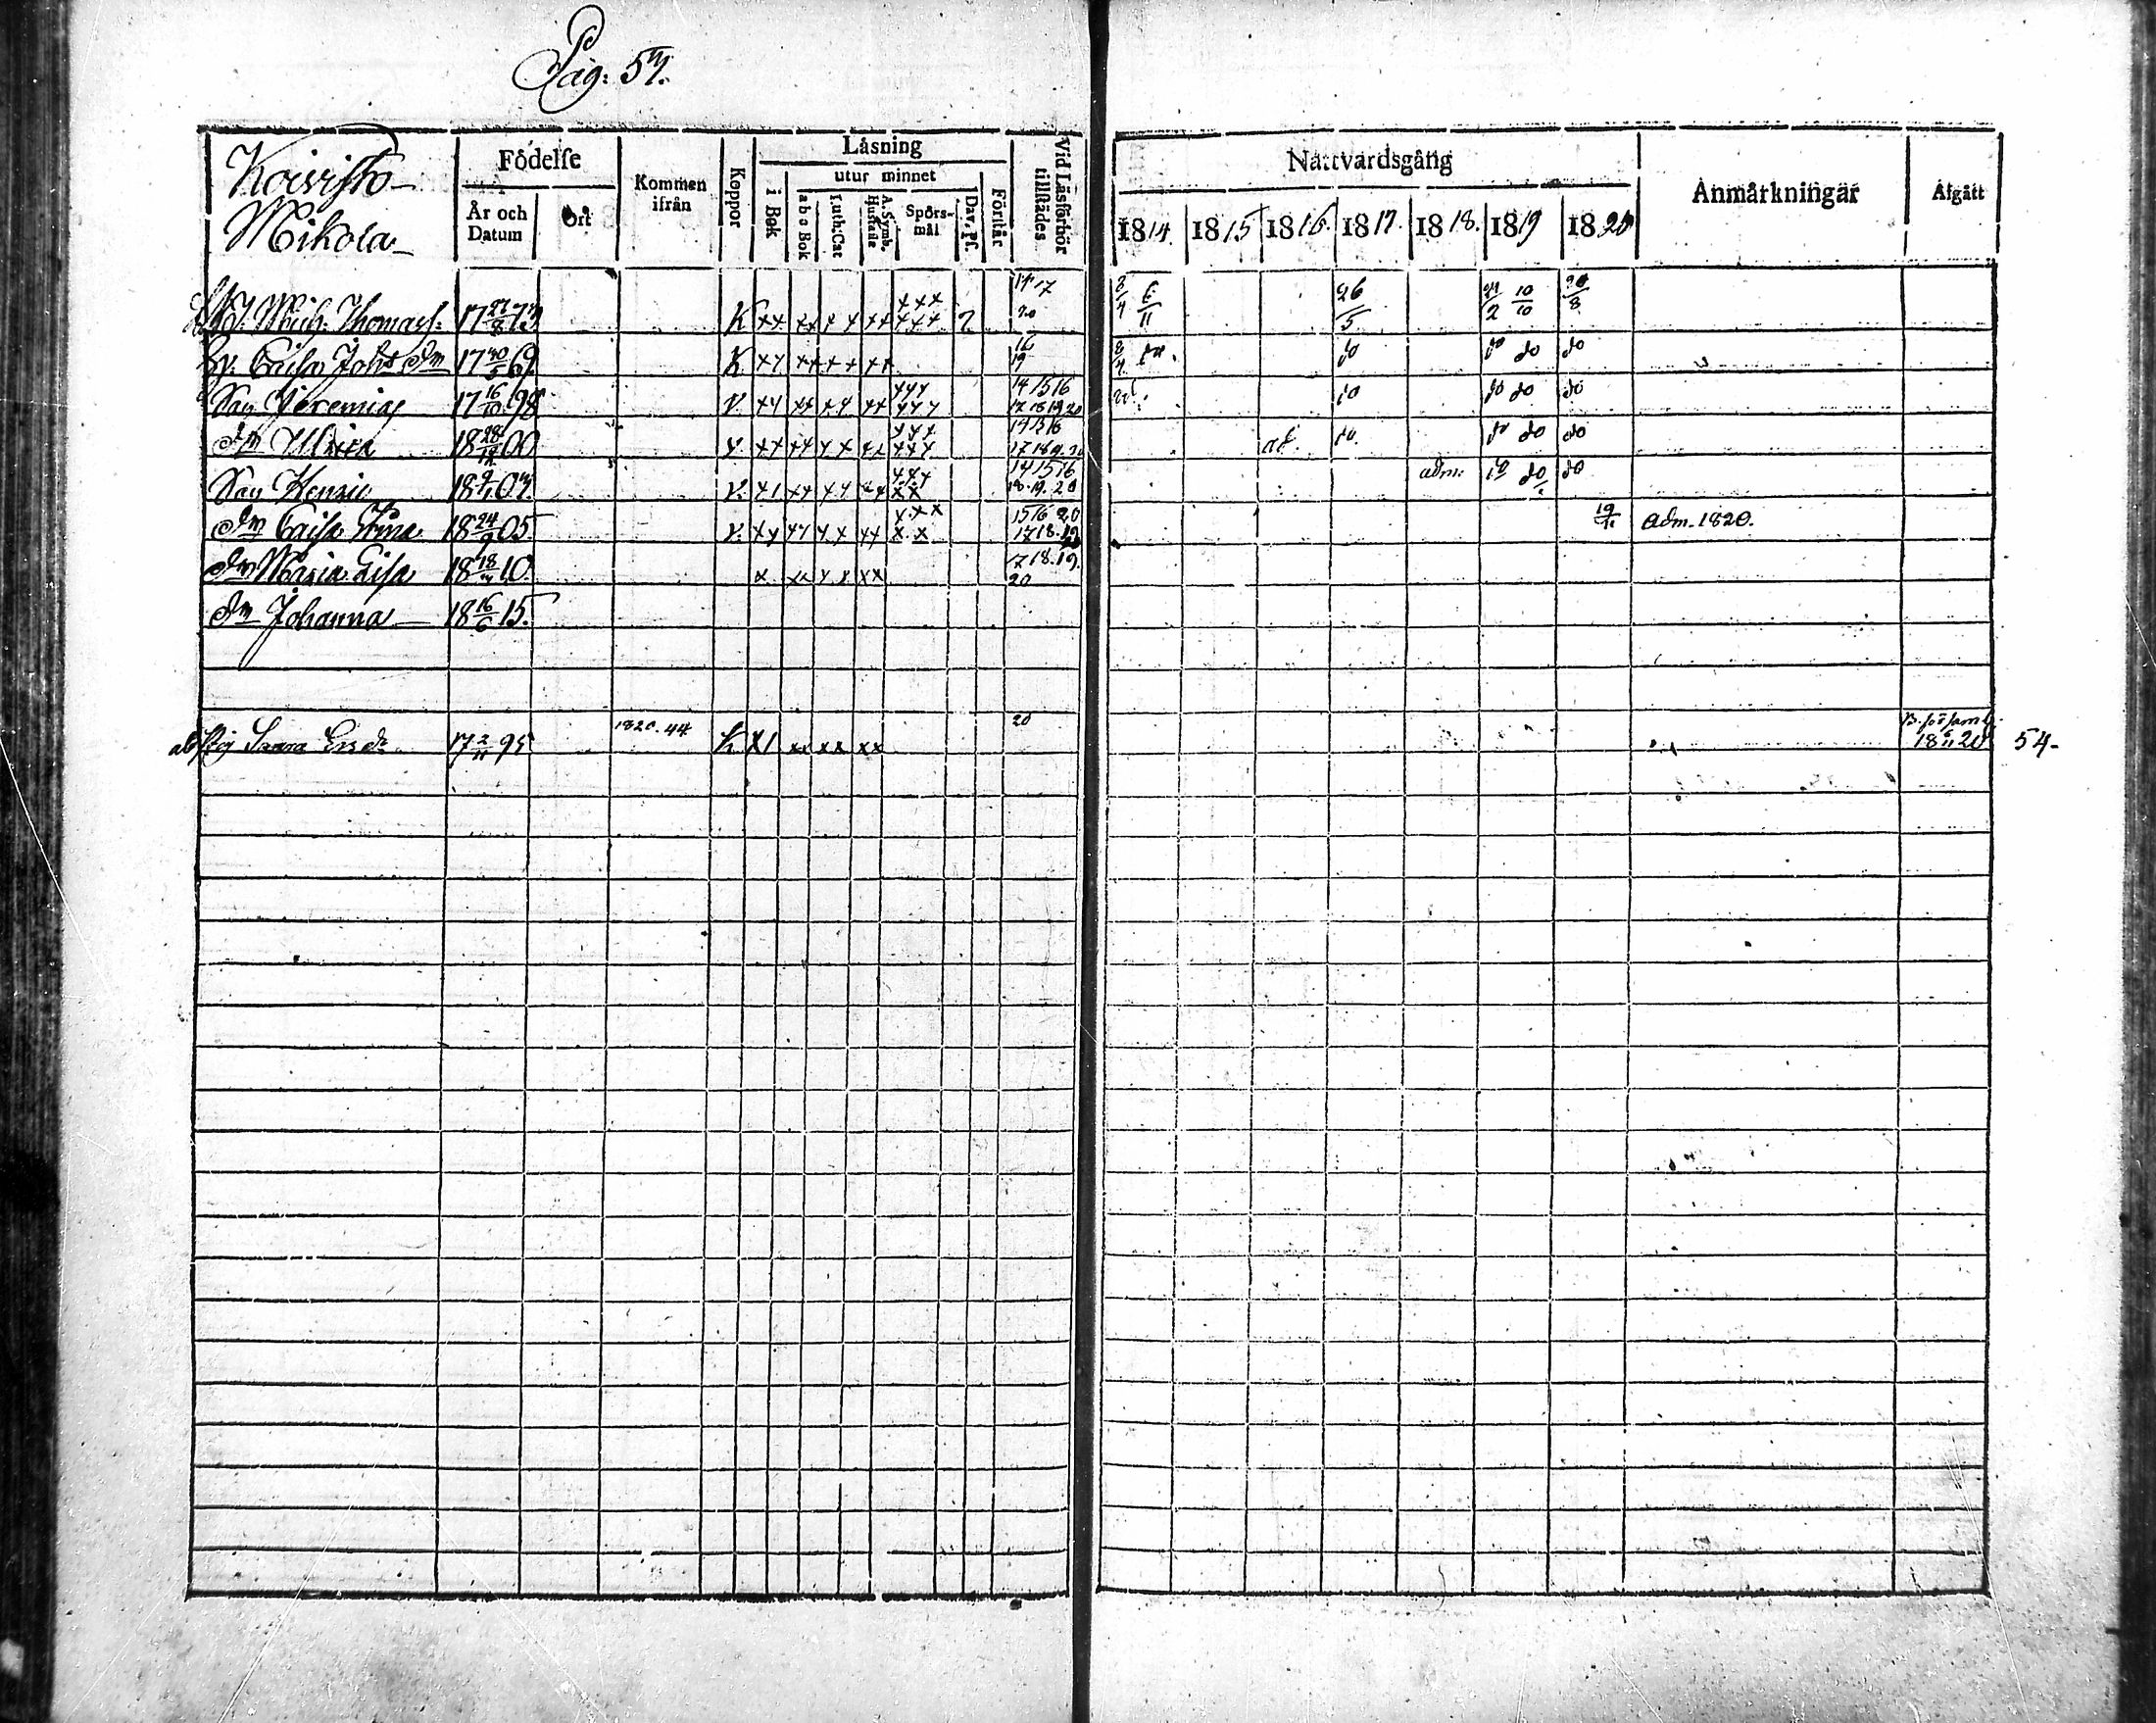 Pag: 57.
Koivisto
Mikola
Födelse
År och Datum
Ort
Kommen ifrån
Koppor
Läsning
i Bok
utur minnet
a b c Bok
Luth: Cat
A. Symb. Hustafle
Spörsmål
Dav. Pf.
Förstår
Vid Läsförhör tillstädes
Nattvardsgång
1814. 1815 1816. 1817. 1818. 1819 1820
Anmärkningar
Afgått
Mich: Thomass: 17 27/8 73 K xx xx xx xx xxx xxx 14 17 20 8/4 6/11 26/5 2 10/10 20/8
Hu: Caisa Joh: dr 17 30/5 69. K xx xx xx xx 16 19 8/4 do do do do
Son Jeremias 17 16/10 98 V. xx xx xx xx xxx xxx 14 15 16 17 18 19 20 do do do do
dr Ulrica 18 28/12 00 V xx xx xx xx xxx xxx 14 15 16 17 18 9. 20 ad. do. do do do
Son Henric 18 9/1 03. V. x1 xx xx xx xxx xx 14 15 16 18. 19. 20 adm: do do do
dr Caisa Stina 18 24/9 05 V. xx xx xx xx xxx xx 15 16 20 17 18. 19 19/11 Adm. 1820.
dr Maria Lisa 18 18/4 10. x xx xx xx 17 18. 19. 20
dr Johanna 18 16/6 15.
pig Saara Ers dr 17 2/11 95 1820. 44 K X1 xx xx xx 20 18 6/11 20 54.